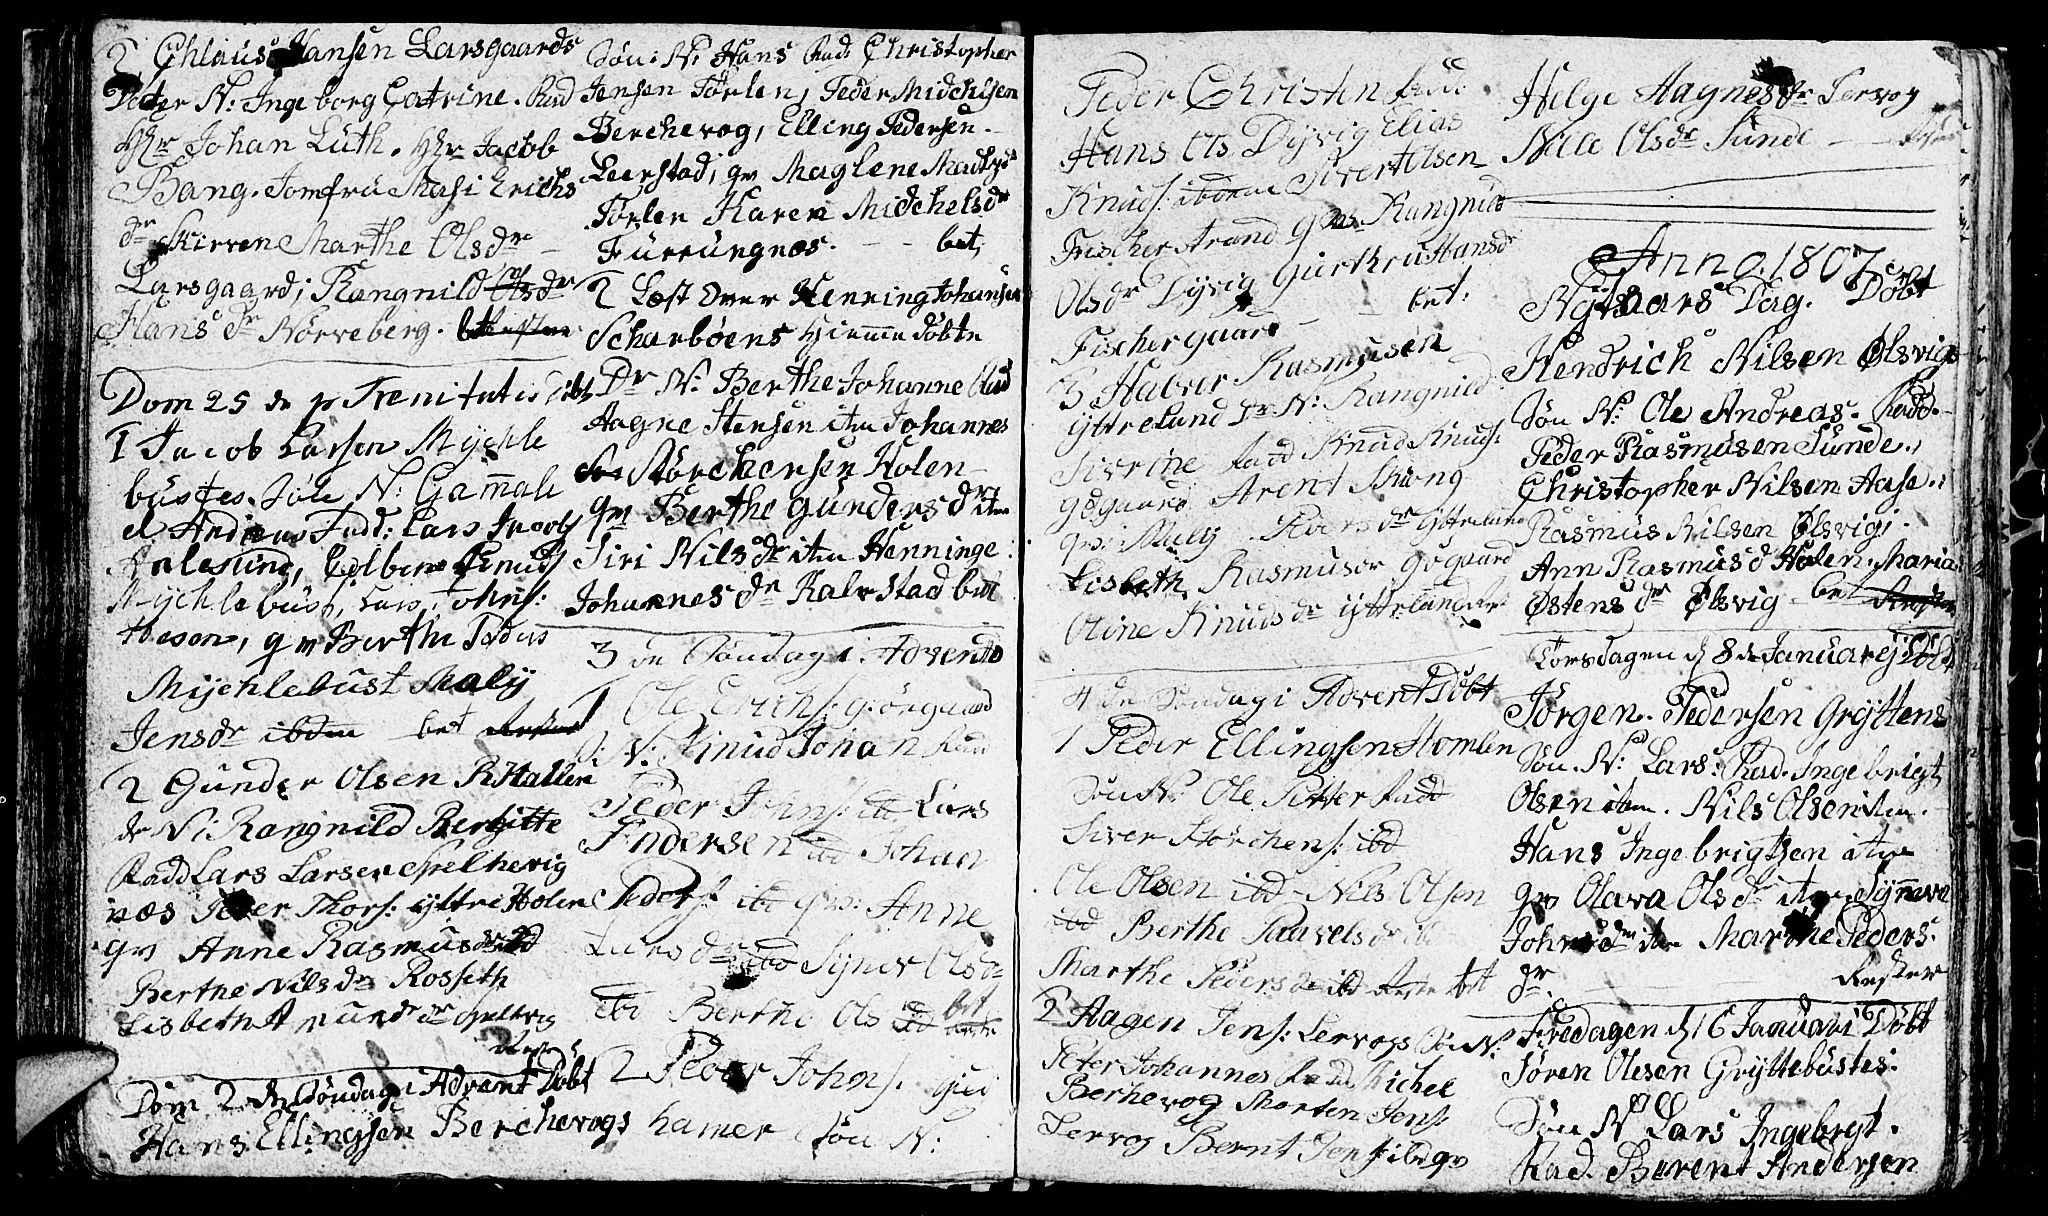 2 Chlaus Hansen Larsgaards
Doter N: Ingeborg Catrine. Fad
Hr Johan Luth. Hr Jacob
Bang. Jomfru Masi Erichs
dr Skirven Marthe Olsdr
Larsgaard; Rangnild Olsdr
Hans dr Nørveberg.
Dom 25 de p Trenitatis Døbt
1 Jacob Larsen Mychle
bustes. Søn N: Gammal
el Andreas Fad: Lars Jacobs
Mychlebust, Lars Johns:
qv Berthe Peders
Mychlebust Maly
Jensdr ibdm bet
2 Gunder Olsen R Hallen
dr N: Rangnild Bergitte
Fadd Lars Larsen Spelhevig
næs Peder Thors: yttre Holen
qv Anne Rasmusdr ibd
Berthe Nilsdr Rosseth
Lisbeth Amundsdr Spelhevig
Dom 2 den Søndag i Advent Døbt
Hans Ellingsen Berchevogs
Søn: N: Hans Fad: Christopher
Jensen Tørlen, Peder Midchlsen
Berchevog, Elling Pedersen
Leerstad; qv Maglene Madhsdr
Tørlen Karen Midchelsdr
Furrungnes. - - bet;
2 Læst over Henning Johansen
Scharbøens Hiemme døbte
Dr N: Berthe Johanne Fad
Aagne Stensen itm Johannes
Størchersen Holen
qv Berthe Gundersdr itm
Siri Nilsdr itm Henninge
Johannesdr Kalvstad bet
3 de Søndag i Advento
1 Ole Erichs: giørgaard
S: N: Knud Johan Fad
Peder Johns: ib Lars
Andersen ibd Johan
Peders: ibd qv: Anne
Larsdr ibd Synev Olsdr
ibd Berthe Ols ibd bet
2 Peder Johns. Gud
hamer Søn N:
Peder Christen Fad
Hans Ols Dyvig Elias
Knuds: ibdm Sivert Olsen
Fischerstrand qv Rangnild
Olsdr Dyvig Gurtru Hansdr
Fischergaard - - bet:
3 Halvor Rasmusen
ytreland Dr N: Rangnild
Sivrine Fadd Knud Knuds:
gøgaard Arent
qv: Maly Ytrelund
Lisbeth Rasmusdr gøgaard
Oline Knudsdr ytterland
4 de Søndag i Advent Døbt
1 Peder Ellingsen Homlen
Søn N: Ole Petter Fadd
Siver Størchers: ibd
Ole Olsen ibd Nils Olsen
ibd Berthe Pauvelsdr ibd
Marthe Pedersdr ibd bet
2 Hagen Jens: Lervogs Søn N:
Peter Johannes Fadd Michel
Berhevog Morten Jens:
Lervog Bernt Jens: ibd qv
Helge Aagnesdr Lervog
Nille Olsdr Sunde - -
Anno. 1807
Nytaars Dag. Døbt
Hendrich Nilsen Ølsvigs
Søn N: Ole Andreas. Fadd.
Peder Rasmusen Sunde.,
Christopher Nilsen Aase.,
Rasmus Nilsen Ølsvig;
Ann Rasmusd Holen. Maria
Østensdr Ølsvig - bet
Torsdagen d 8 de Januarij Døbt
Jørgen. Pedersen Gryttens
Søn. N: Lars: Fad. Ingebrigt
Olsen itm. Nils Olsen itm.
Hans Ingebrigtsen itm
qv Olava Olsdr itm. Synneva
Johnsdr itm Marthe Peders:
dr.
Fredagen d 16 Januari Døbt
Søren Olesen Gryttebustes:
Søn N Lars Ingebrygt.
Fad. Berent Andersen